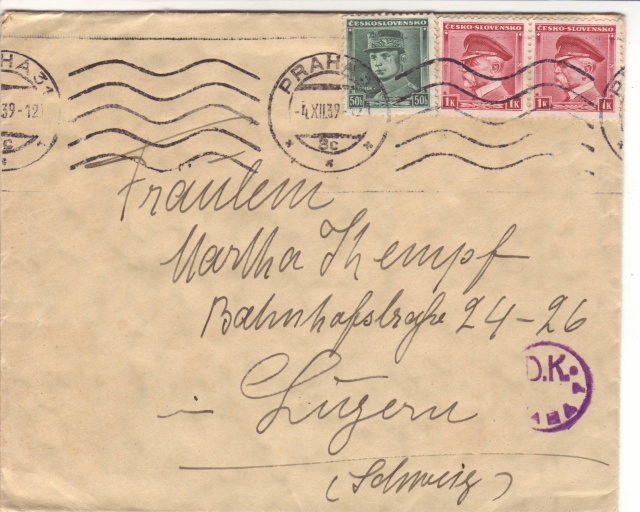 ČESKOSLOVENSKO ČESKO-SLOVENSKO ČESKO-SLOVENSKO
50h 50h 1K 1K 1K 1K
PRAHA 31
4.XII.39-12
8c
39-12
Fräulein
Martha Kempf
Bahnhofstraße 24-26
in Luzern
(Schweiz)
D.K.